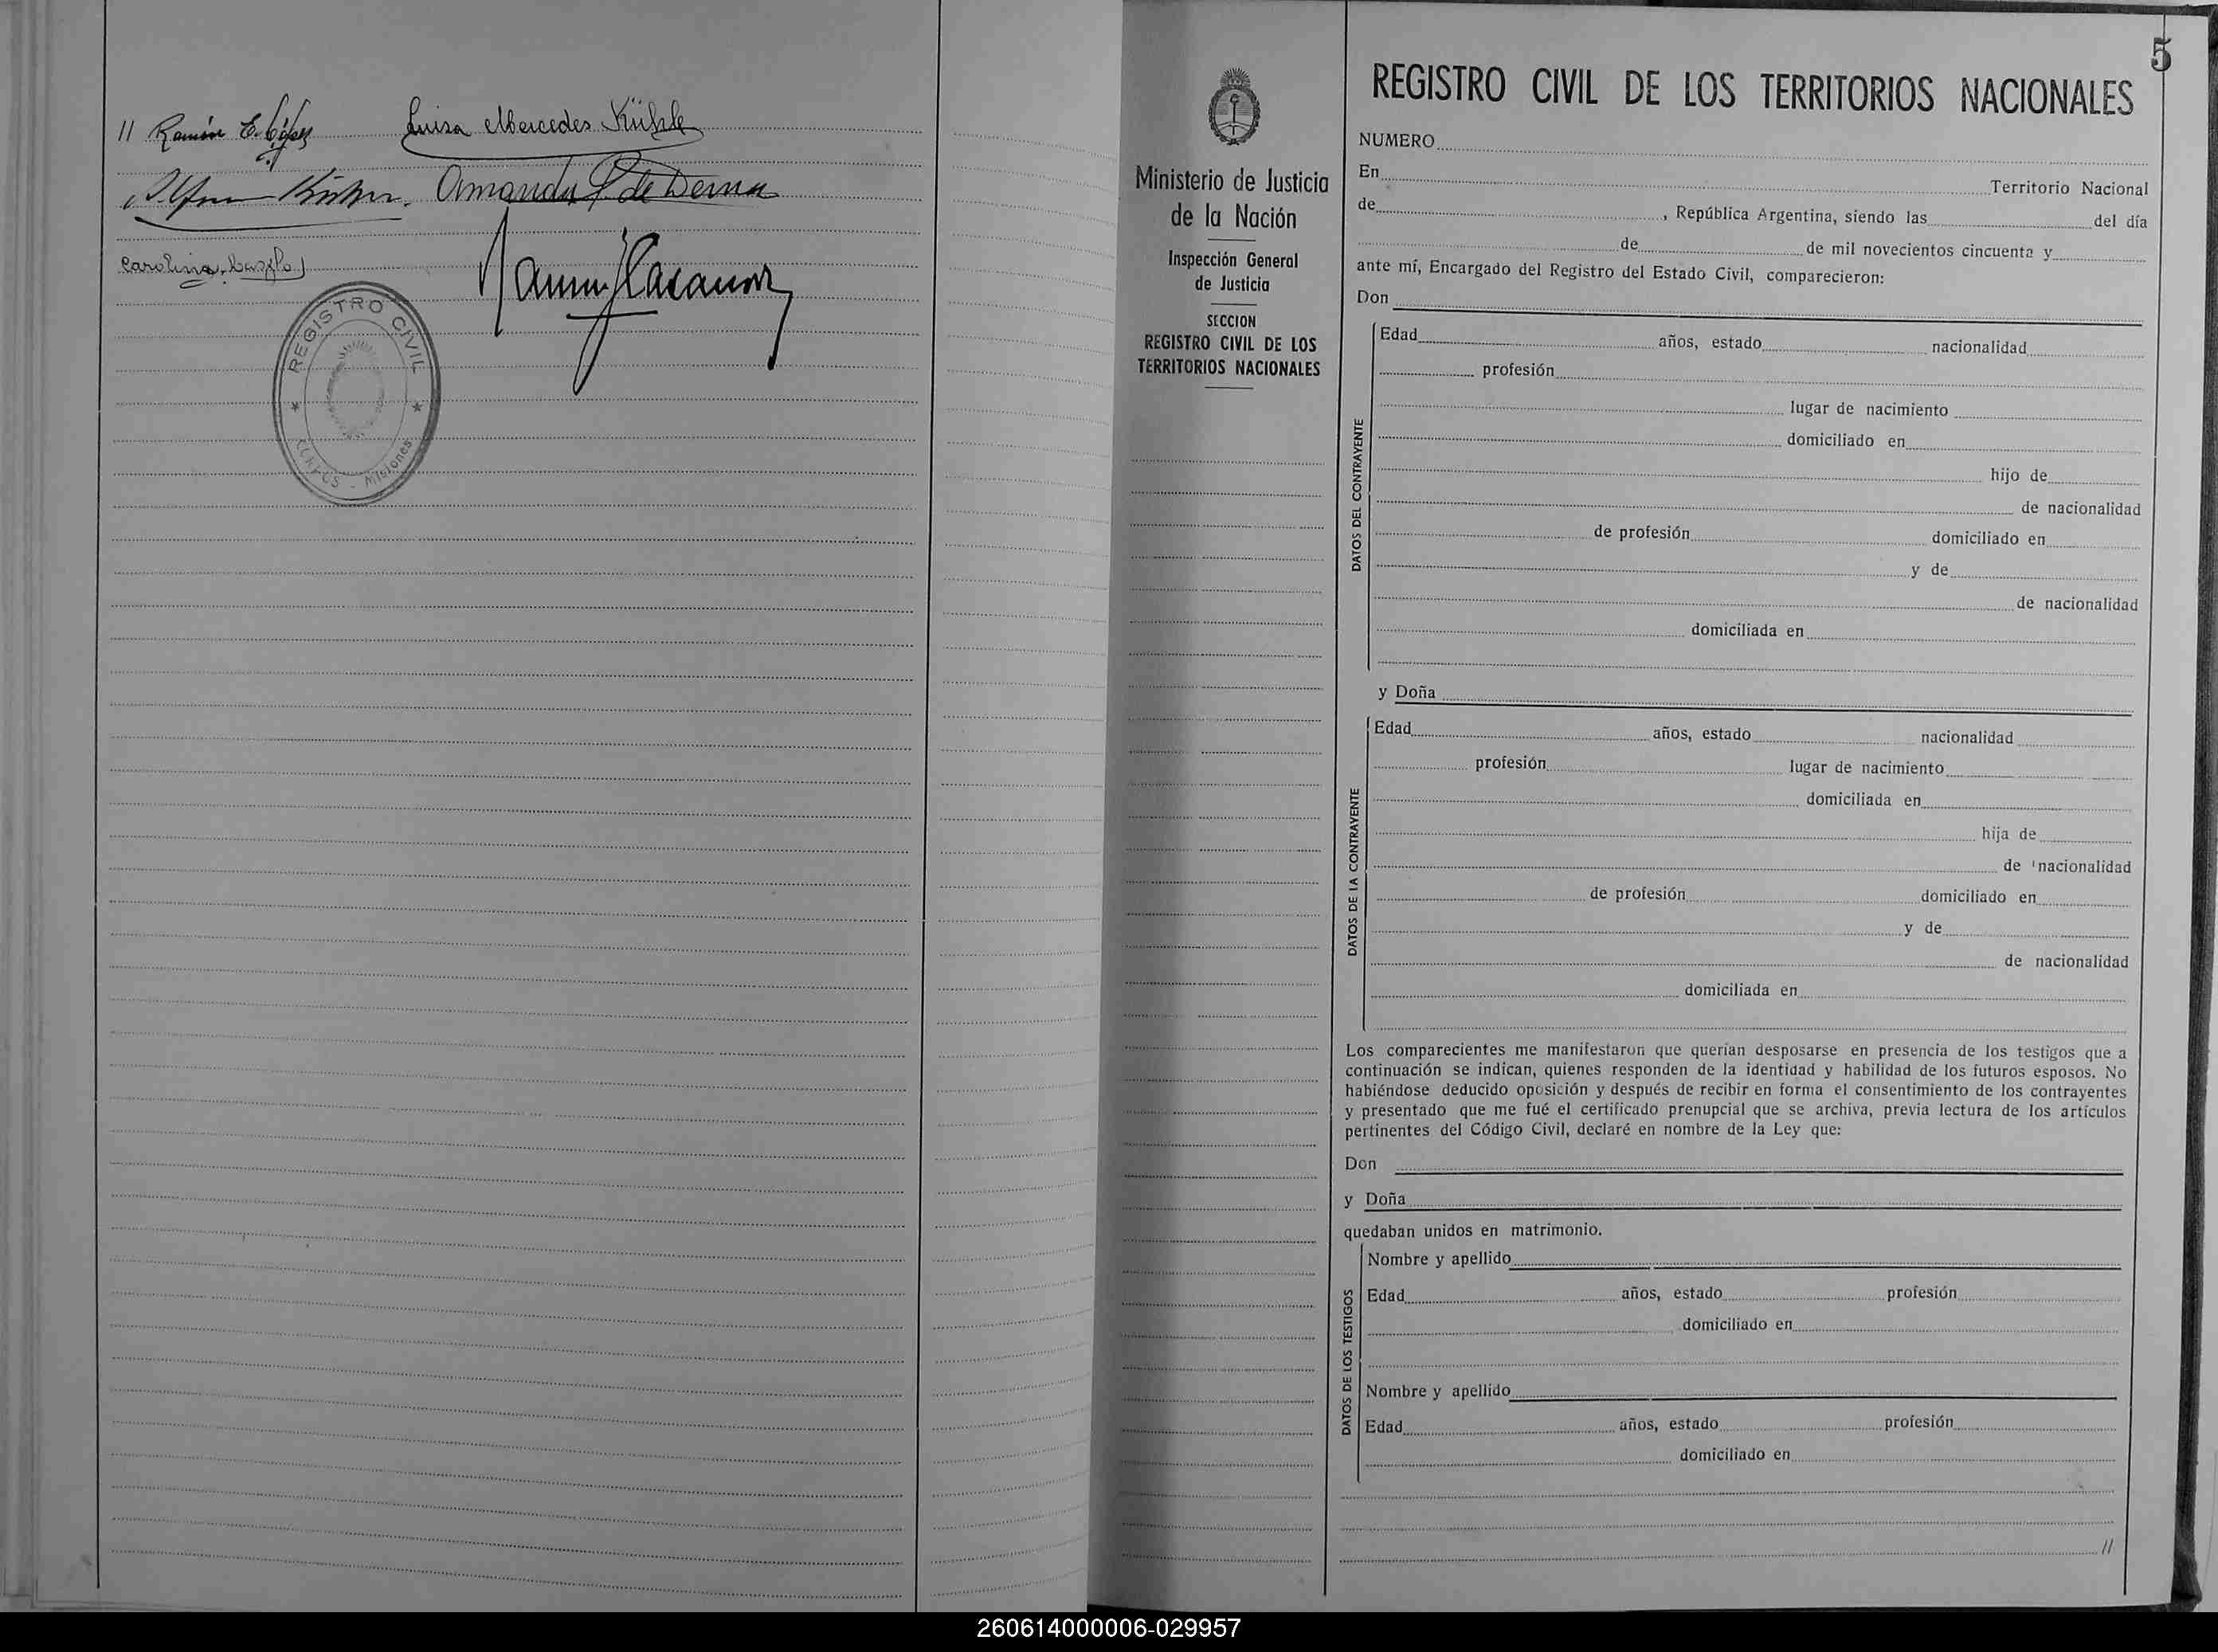 // Ramón E. López Luisa Mercedes Kühle
Amanda de
Carolina
REGISTRO CIVIL
CORPUS - Misiones
5
REGISTRO CIVIL DE LOS TERRITORIOS NACIONALES
Ministerio de Justicia
de la Nación
Inspección General
de Justicia
SECCION
REGISTRO CIVIL DE LOS
TERRITORIOS NACIONALES
NUMERO
En Territorio Nacional
de , República Argentina, siendo las del día
de de mil novecientos cincuenta y
ante mí, Encargado del Registro del Estado Civil, comparecieron:
Don
DATOS DEL CONTRAYENTE
Edad años, estado nacionalidad
profesión
lugar de nacimiento
domiciliado en
hijo de
de nacionalidad
de profesión domiciliado en
y de
de nacionalidad
domiciliada en
y Doña
DATOS DE LA CONTRAYENTE
Edad años, estado nacionalidad
profesión lugar de nacimiento
domiciliada en
hija de
de nacionalidad
de profesión domiciliado en
y de
de nacionalidad
domiciliada en
Los comparecientes me manifestaron que querían desposarse en presencia de los testigos que a
continuación se indican, quienes responden de la identidad y habilidad de los futuros esposos. No
habiéndose deducido oposición y después de recibir en forma el consentimiento de los contrayentes
y presentado que me fué el certificado prenupcial que se archiva, previa lectura de los artículos
pertinentes del Código Civil, declaré en nombre de la Ley que:
Don
y Doña
quedaban unidos en matrimonio.
DATOS DE LOS TESTIGOS
Nombre y apellido
Edad años, estado profesión
domiciliado en
Nombre y apellido
Edad años, estado profesión
domiciliado en
//
260614000006-029957